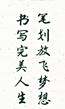 笔划放飞梦想
书写完美人生